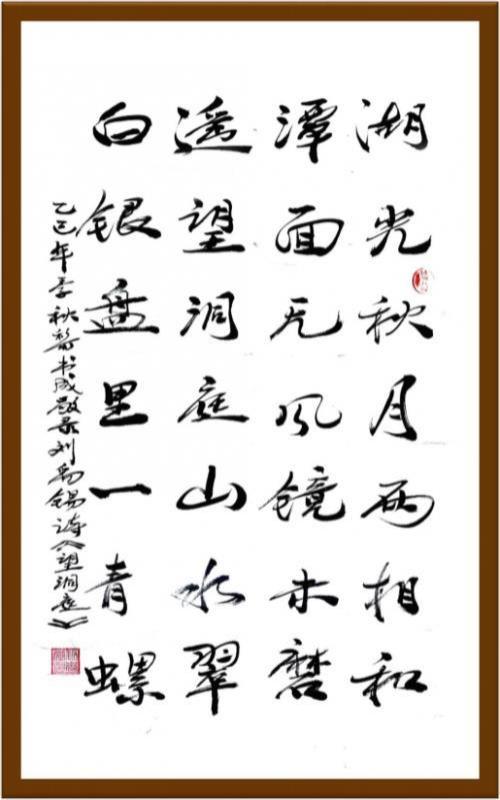 湖光秋月两相和
潭面无风镜未磨
遥望洞庭山水翠
白银盘里一青螺
乙巳年季秋 书 录刘禹锡诗《望洞庭》